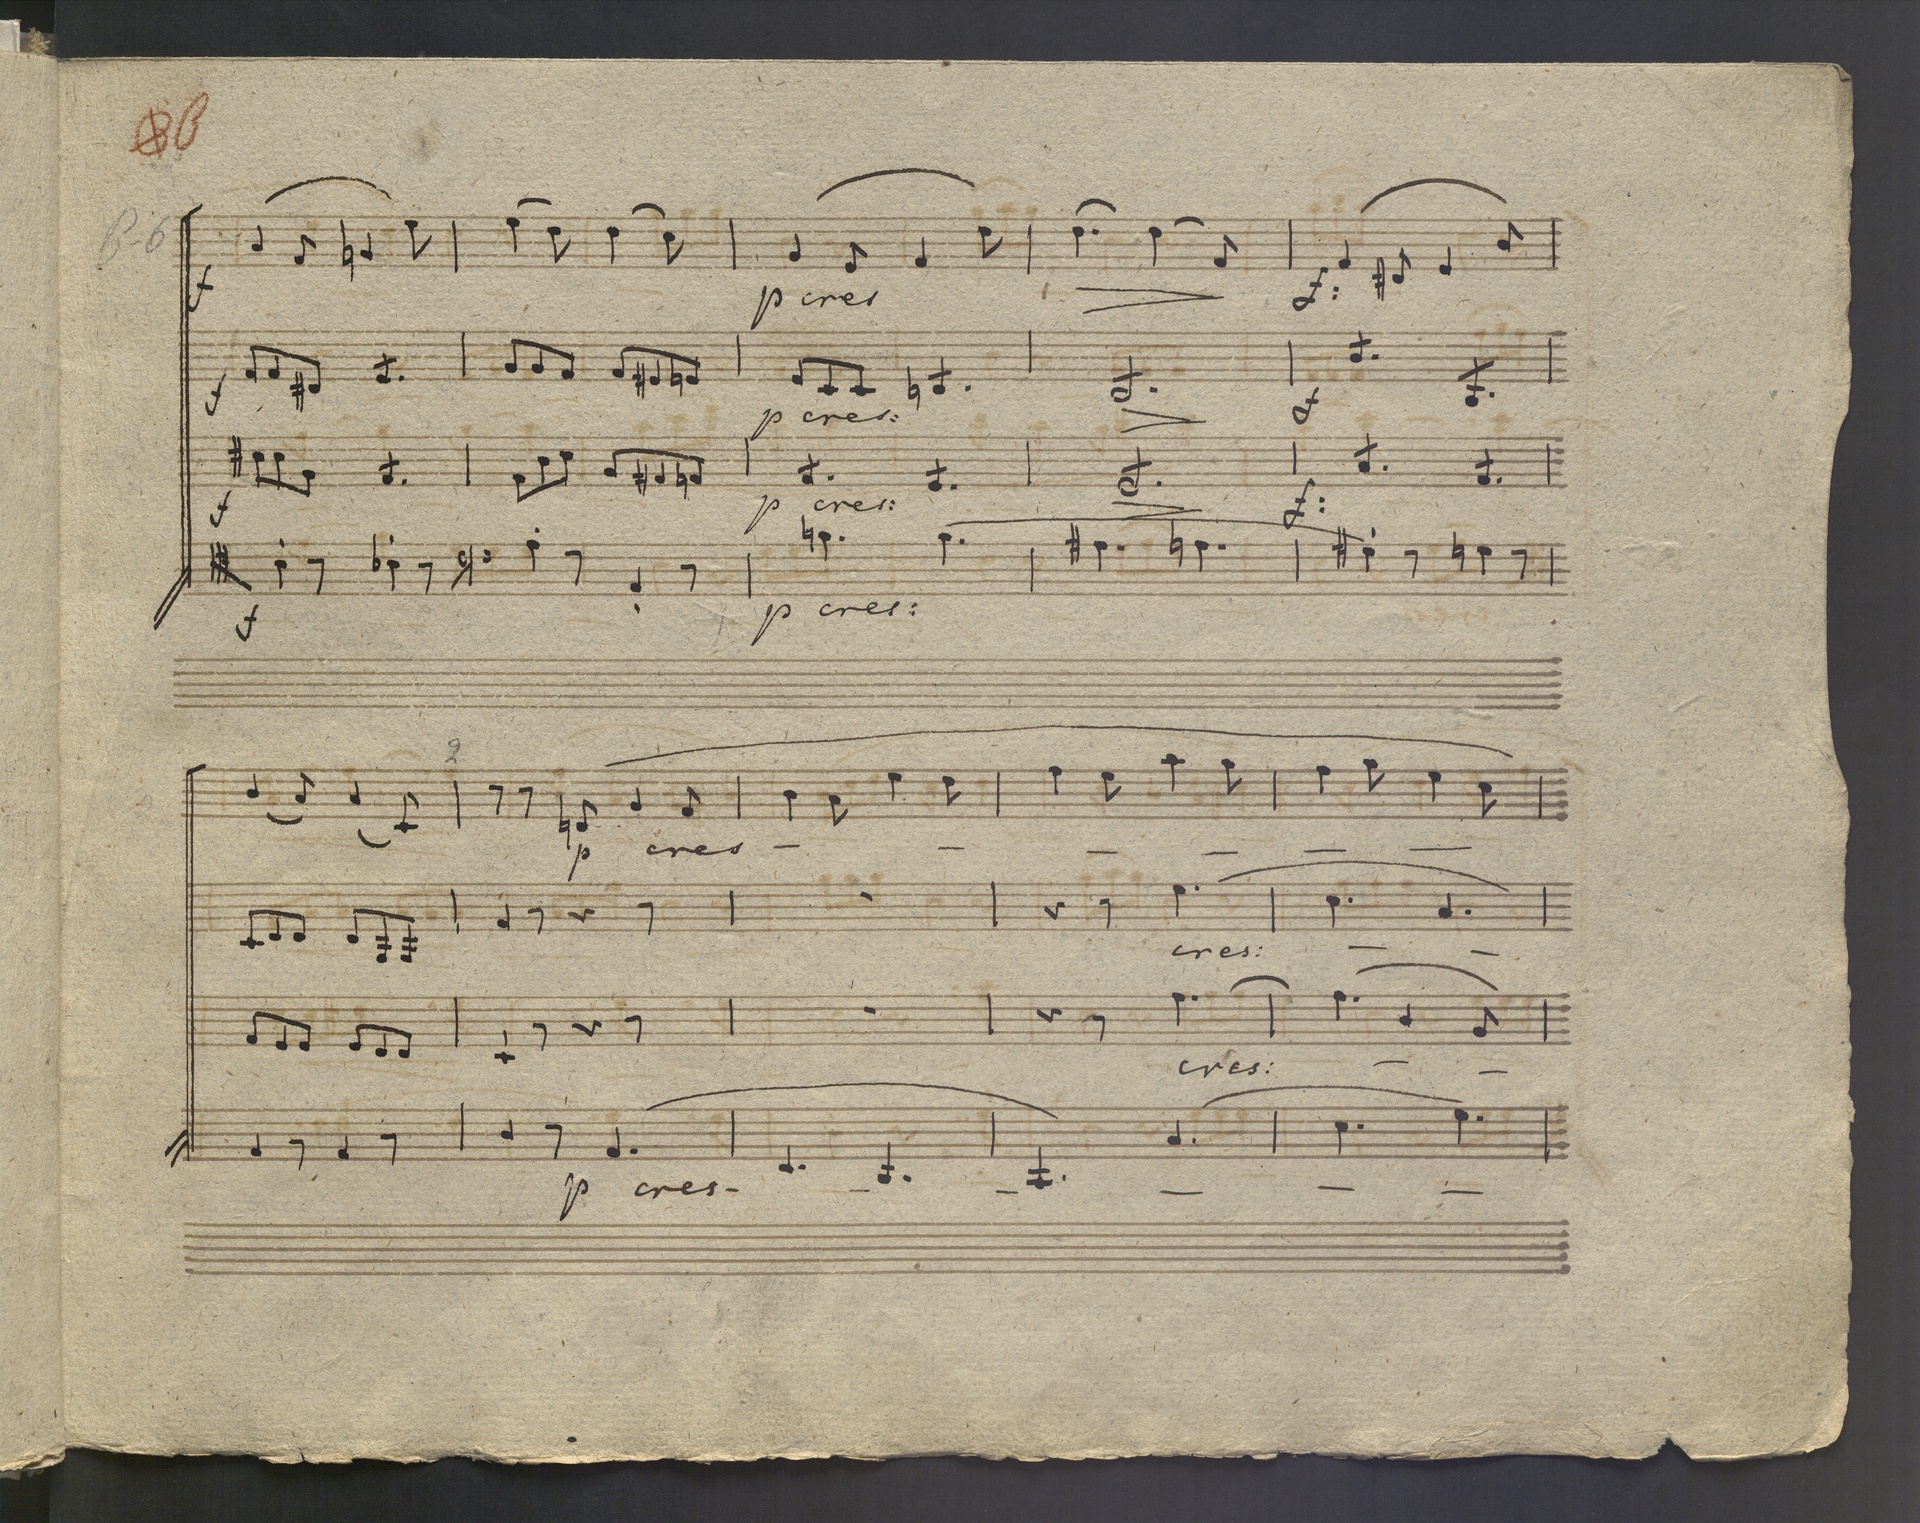 B-6
f
p cres
f:
f
p cres:
f
f
p cres:
f:
f
p cres:
2
p cres – – – – – –
cres: – –
cres: – –
p cres- – – – – –